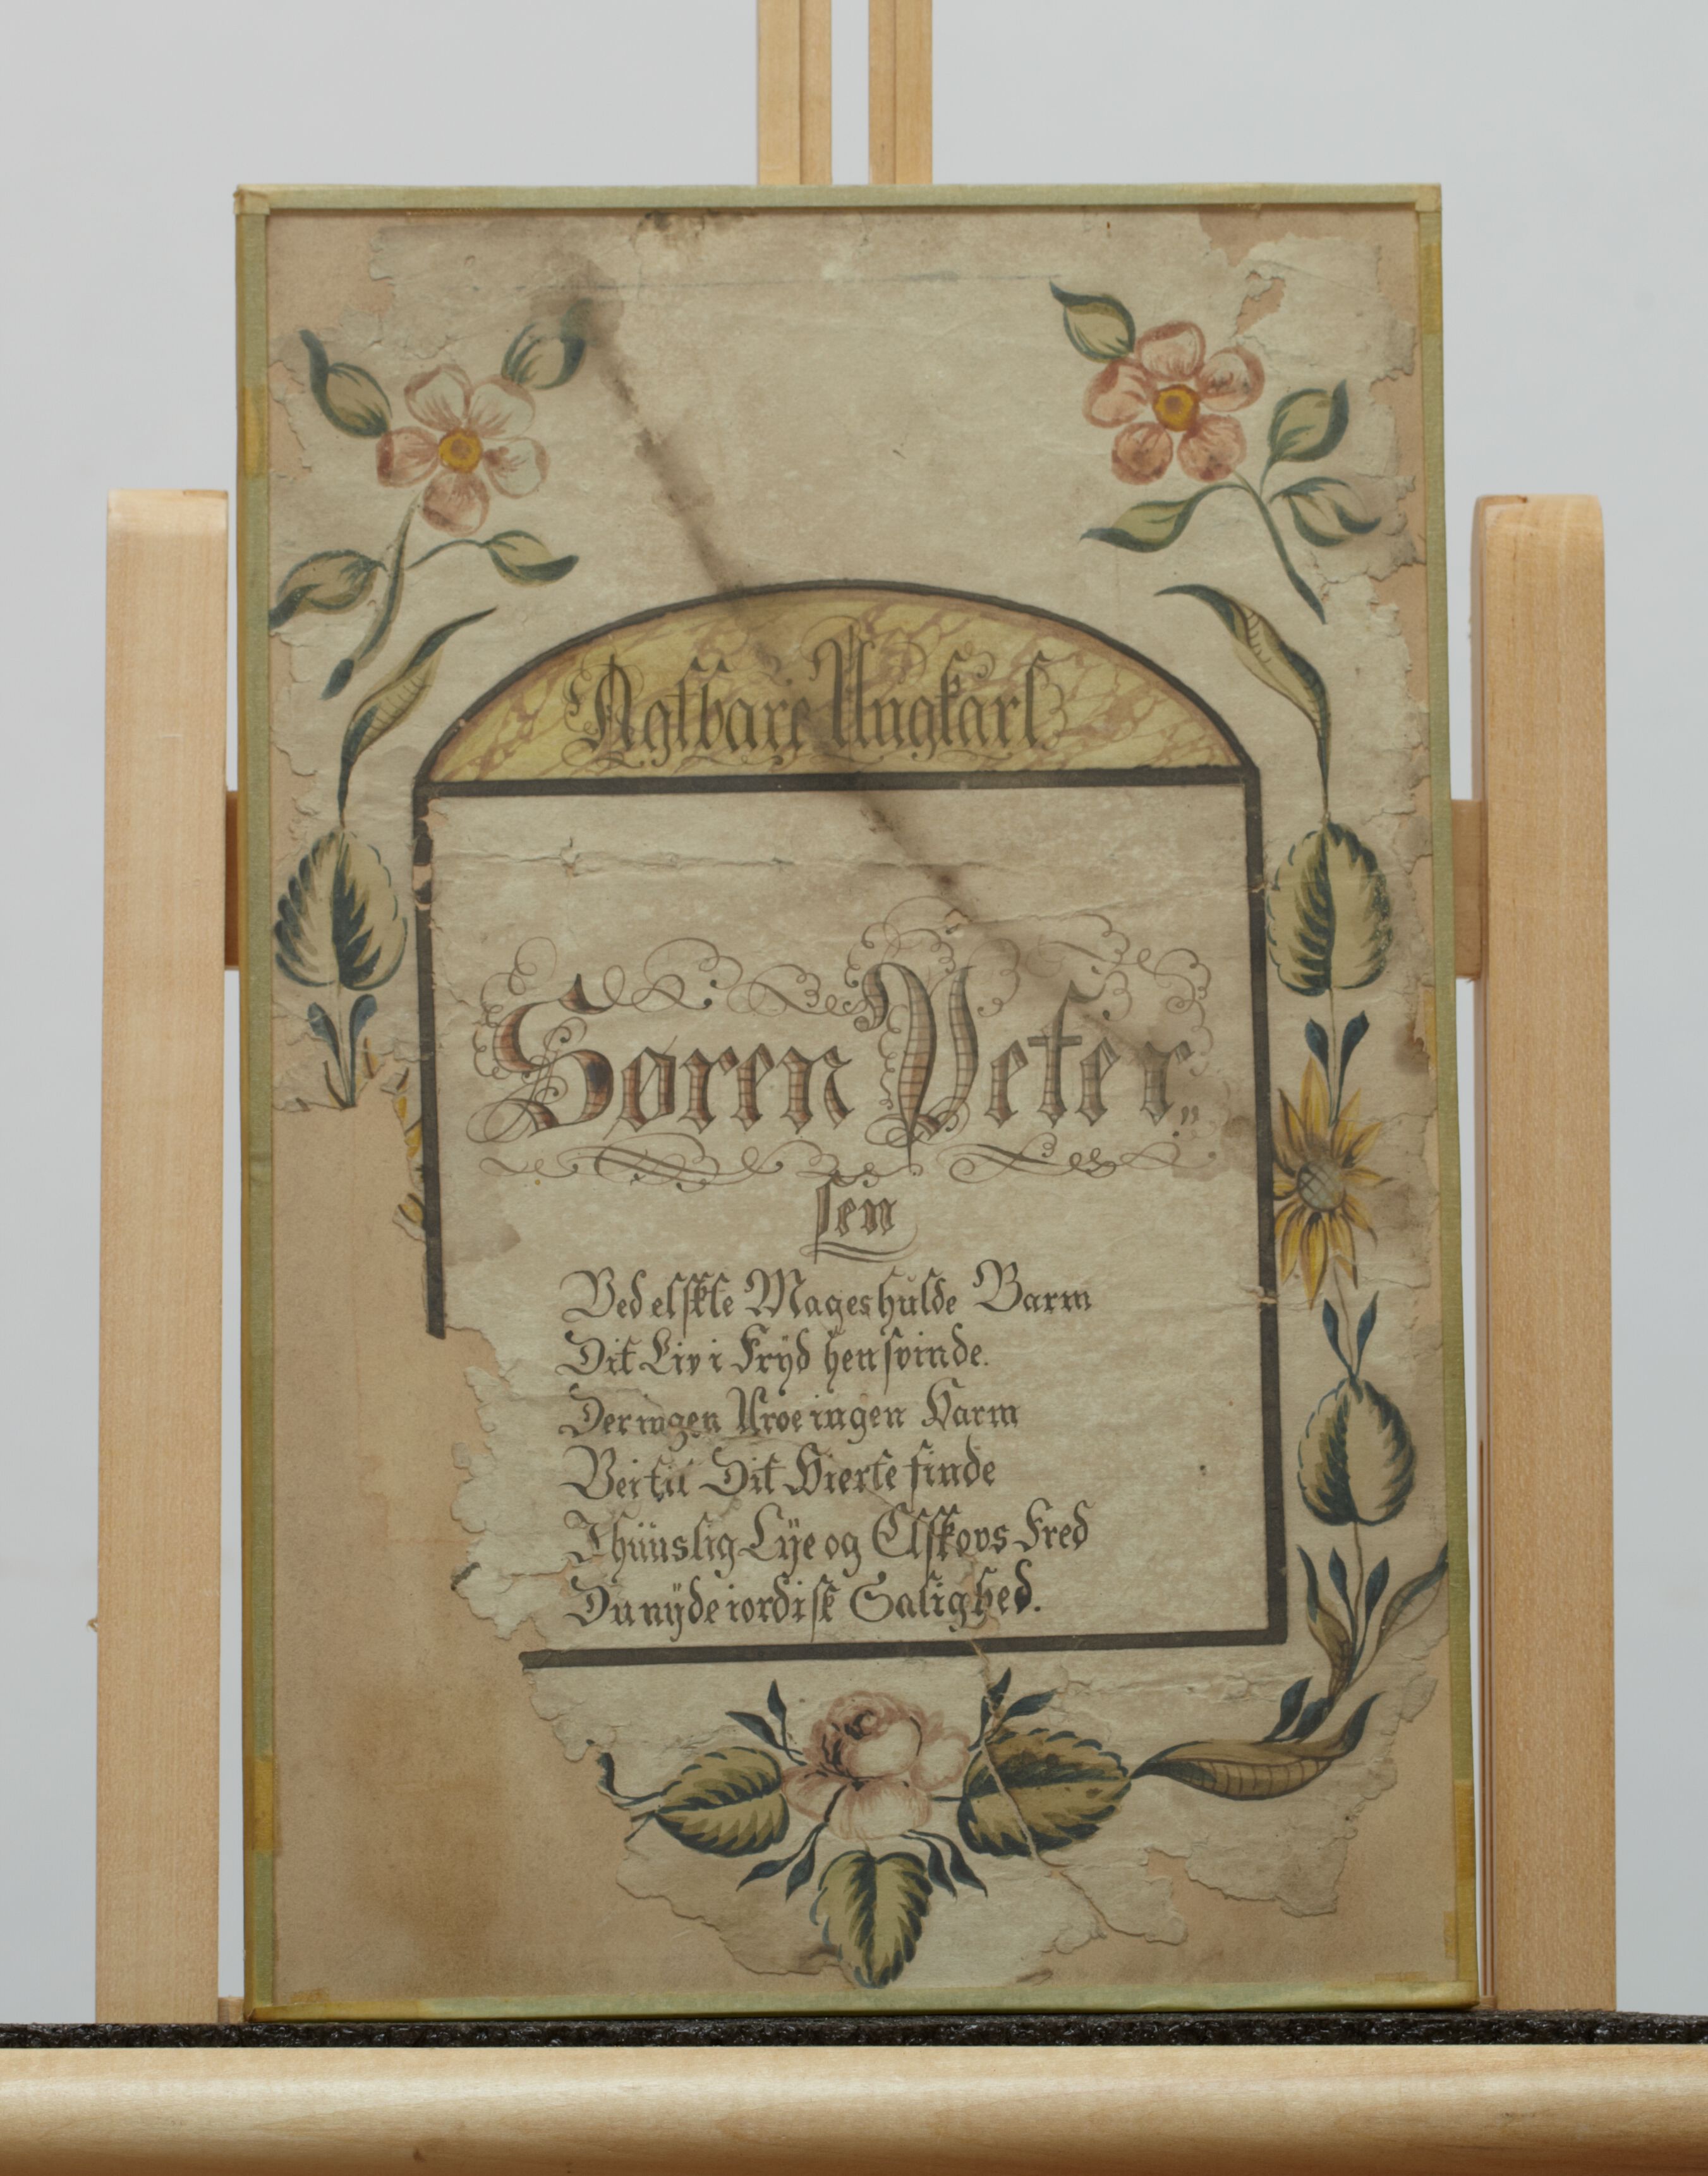 Agtbare Ungkarl
Søren Peter„
sen
Ved elskte Mages hulde Barm
Dit Liv i Fryd hensvinde.
Der ingen Uroe ingen Harm
Vei til Dit Hierte finde
I huuslig Lÿe og Elskovs Fred
Du nÿde iordisk Salighed.